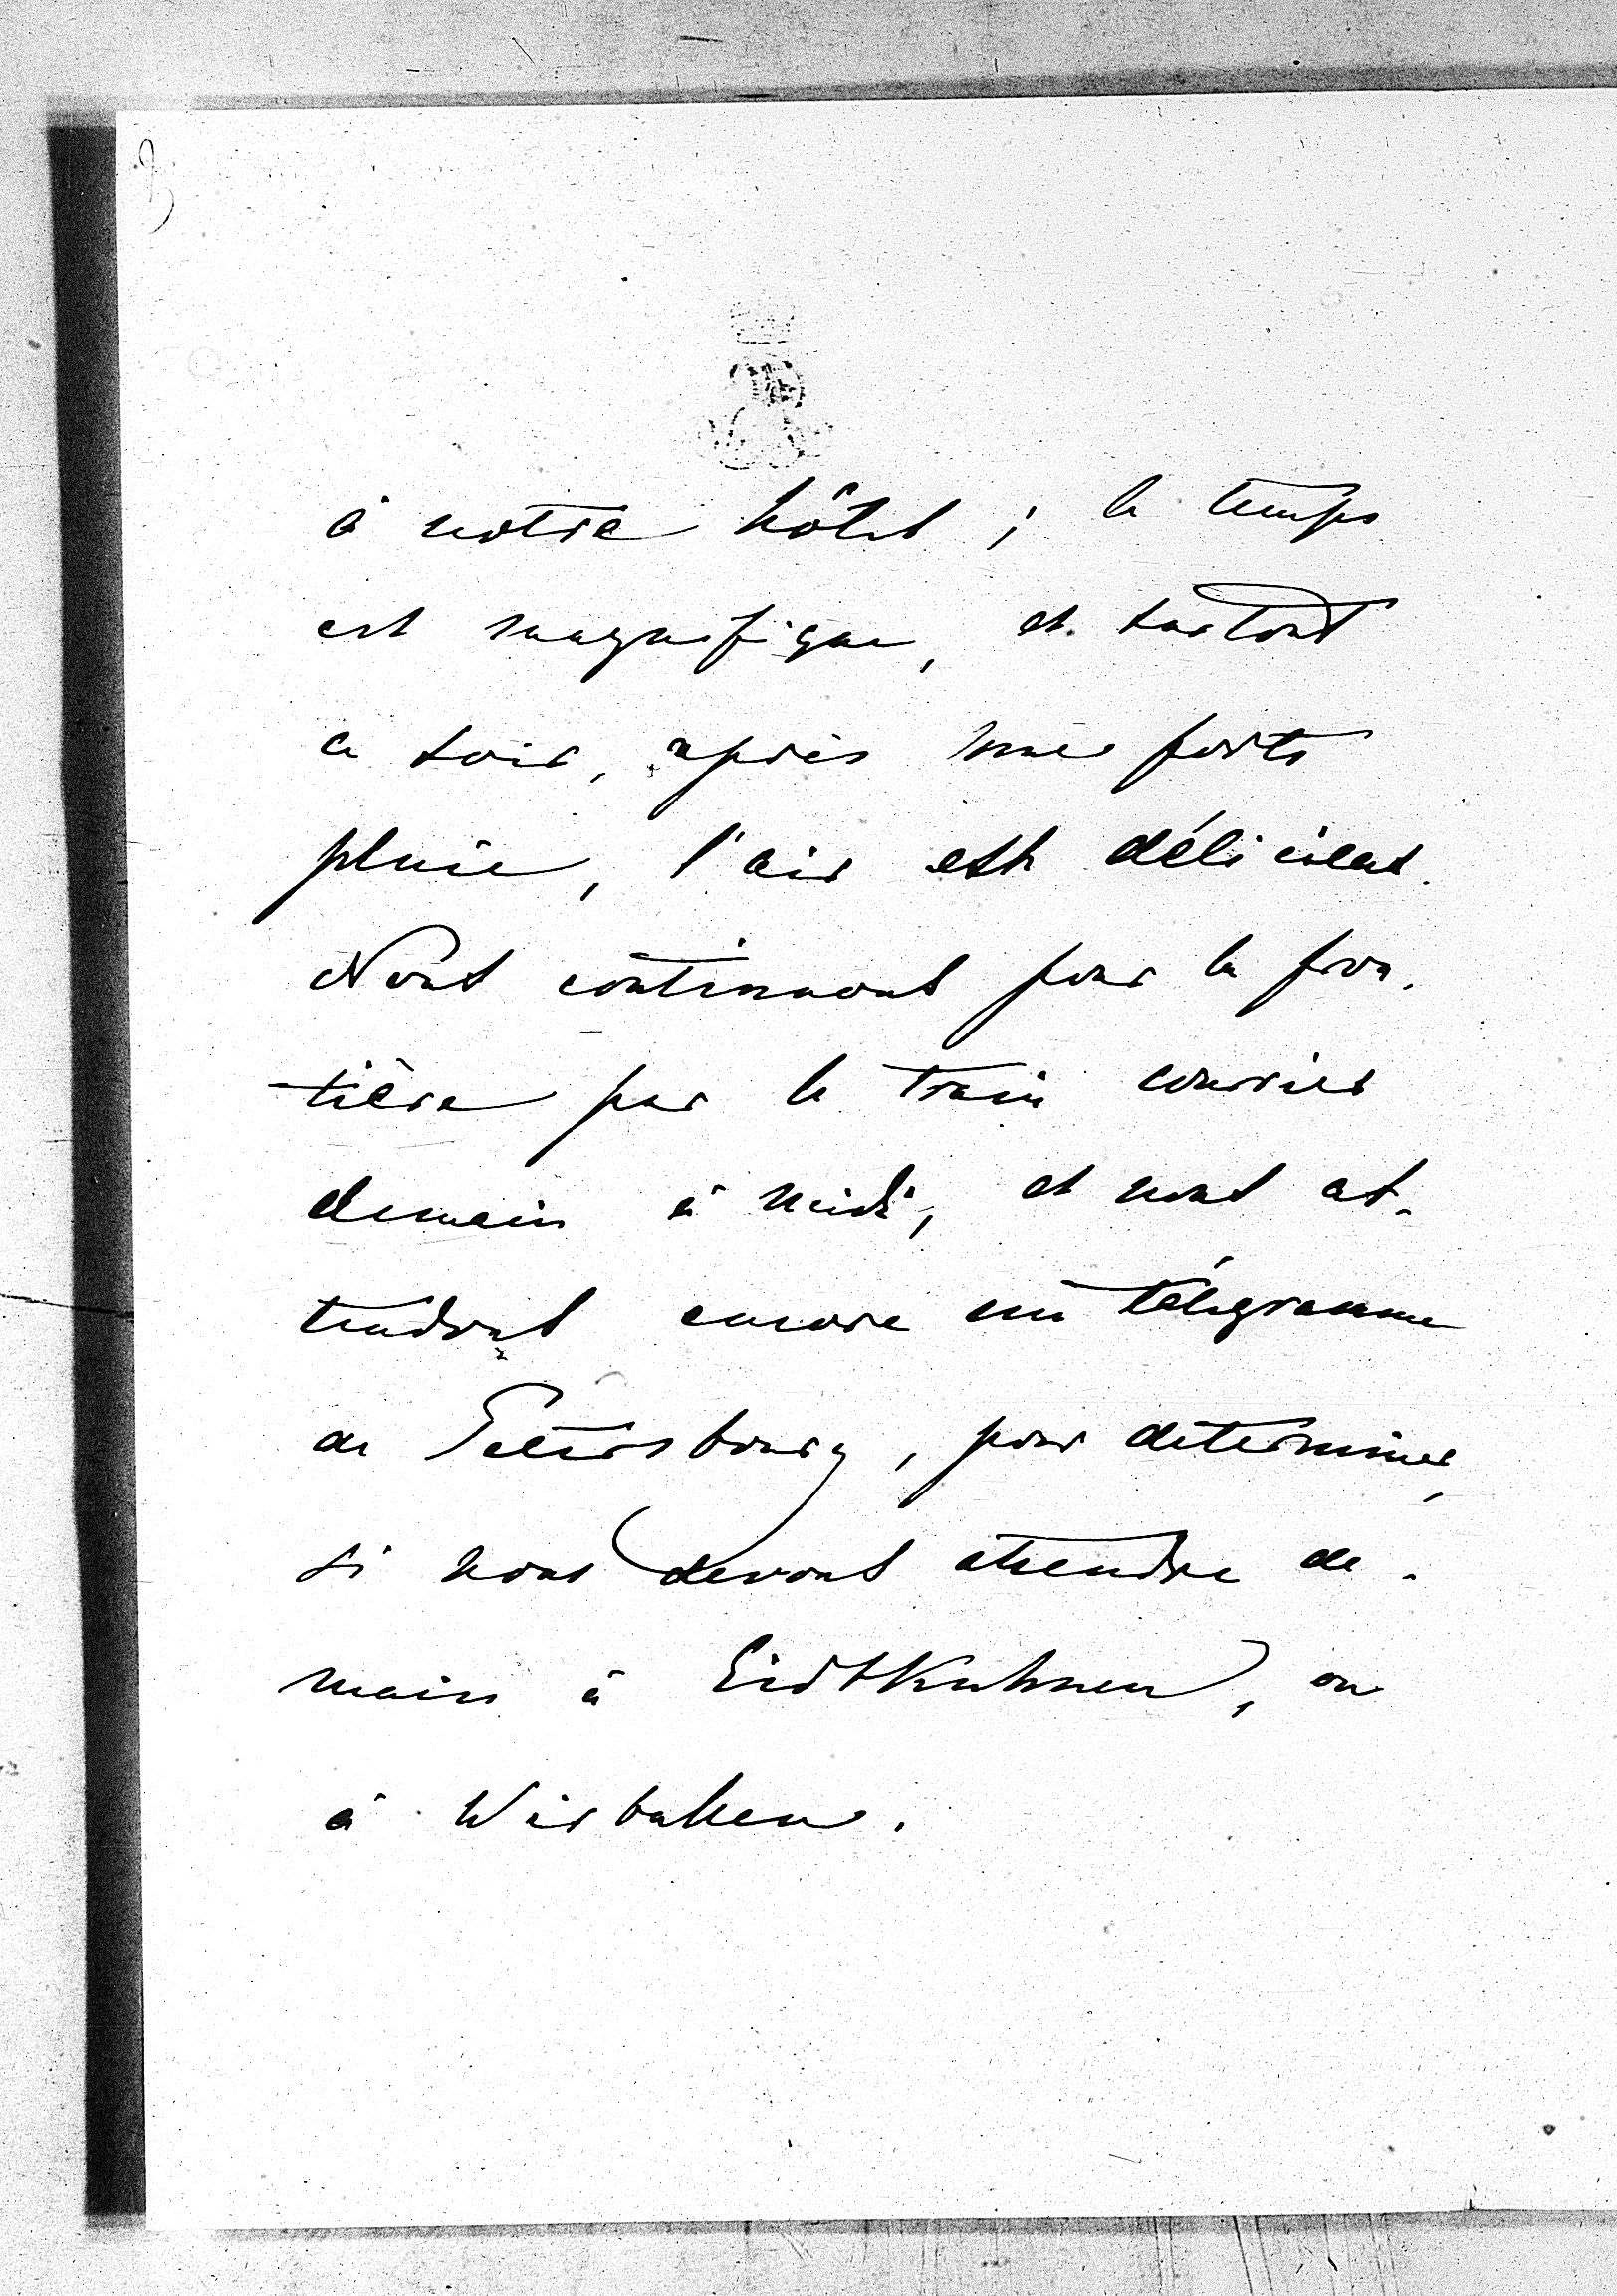 3
à notre hôtel ; le temps
est magnifique, et surtout
ce soir, après une forte
pluie, l'air est délicieux.
Nous continuons pour la fron-
tière par le train courrier
demain à midi, et nous at-
tendons encore un télégramme
de Pétersbourg, pour déterminer,
si nous devons attendre de-
main à Eidtkuhnen, ou
à Wirballen.